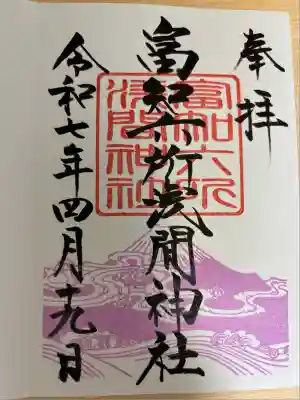 奉拝
富知六所浅間神社
令和七年四月十九日
富知六所
淺間神社